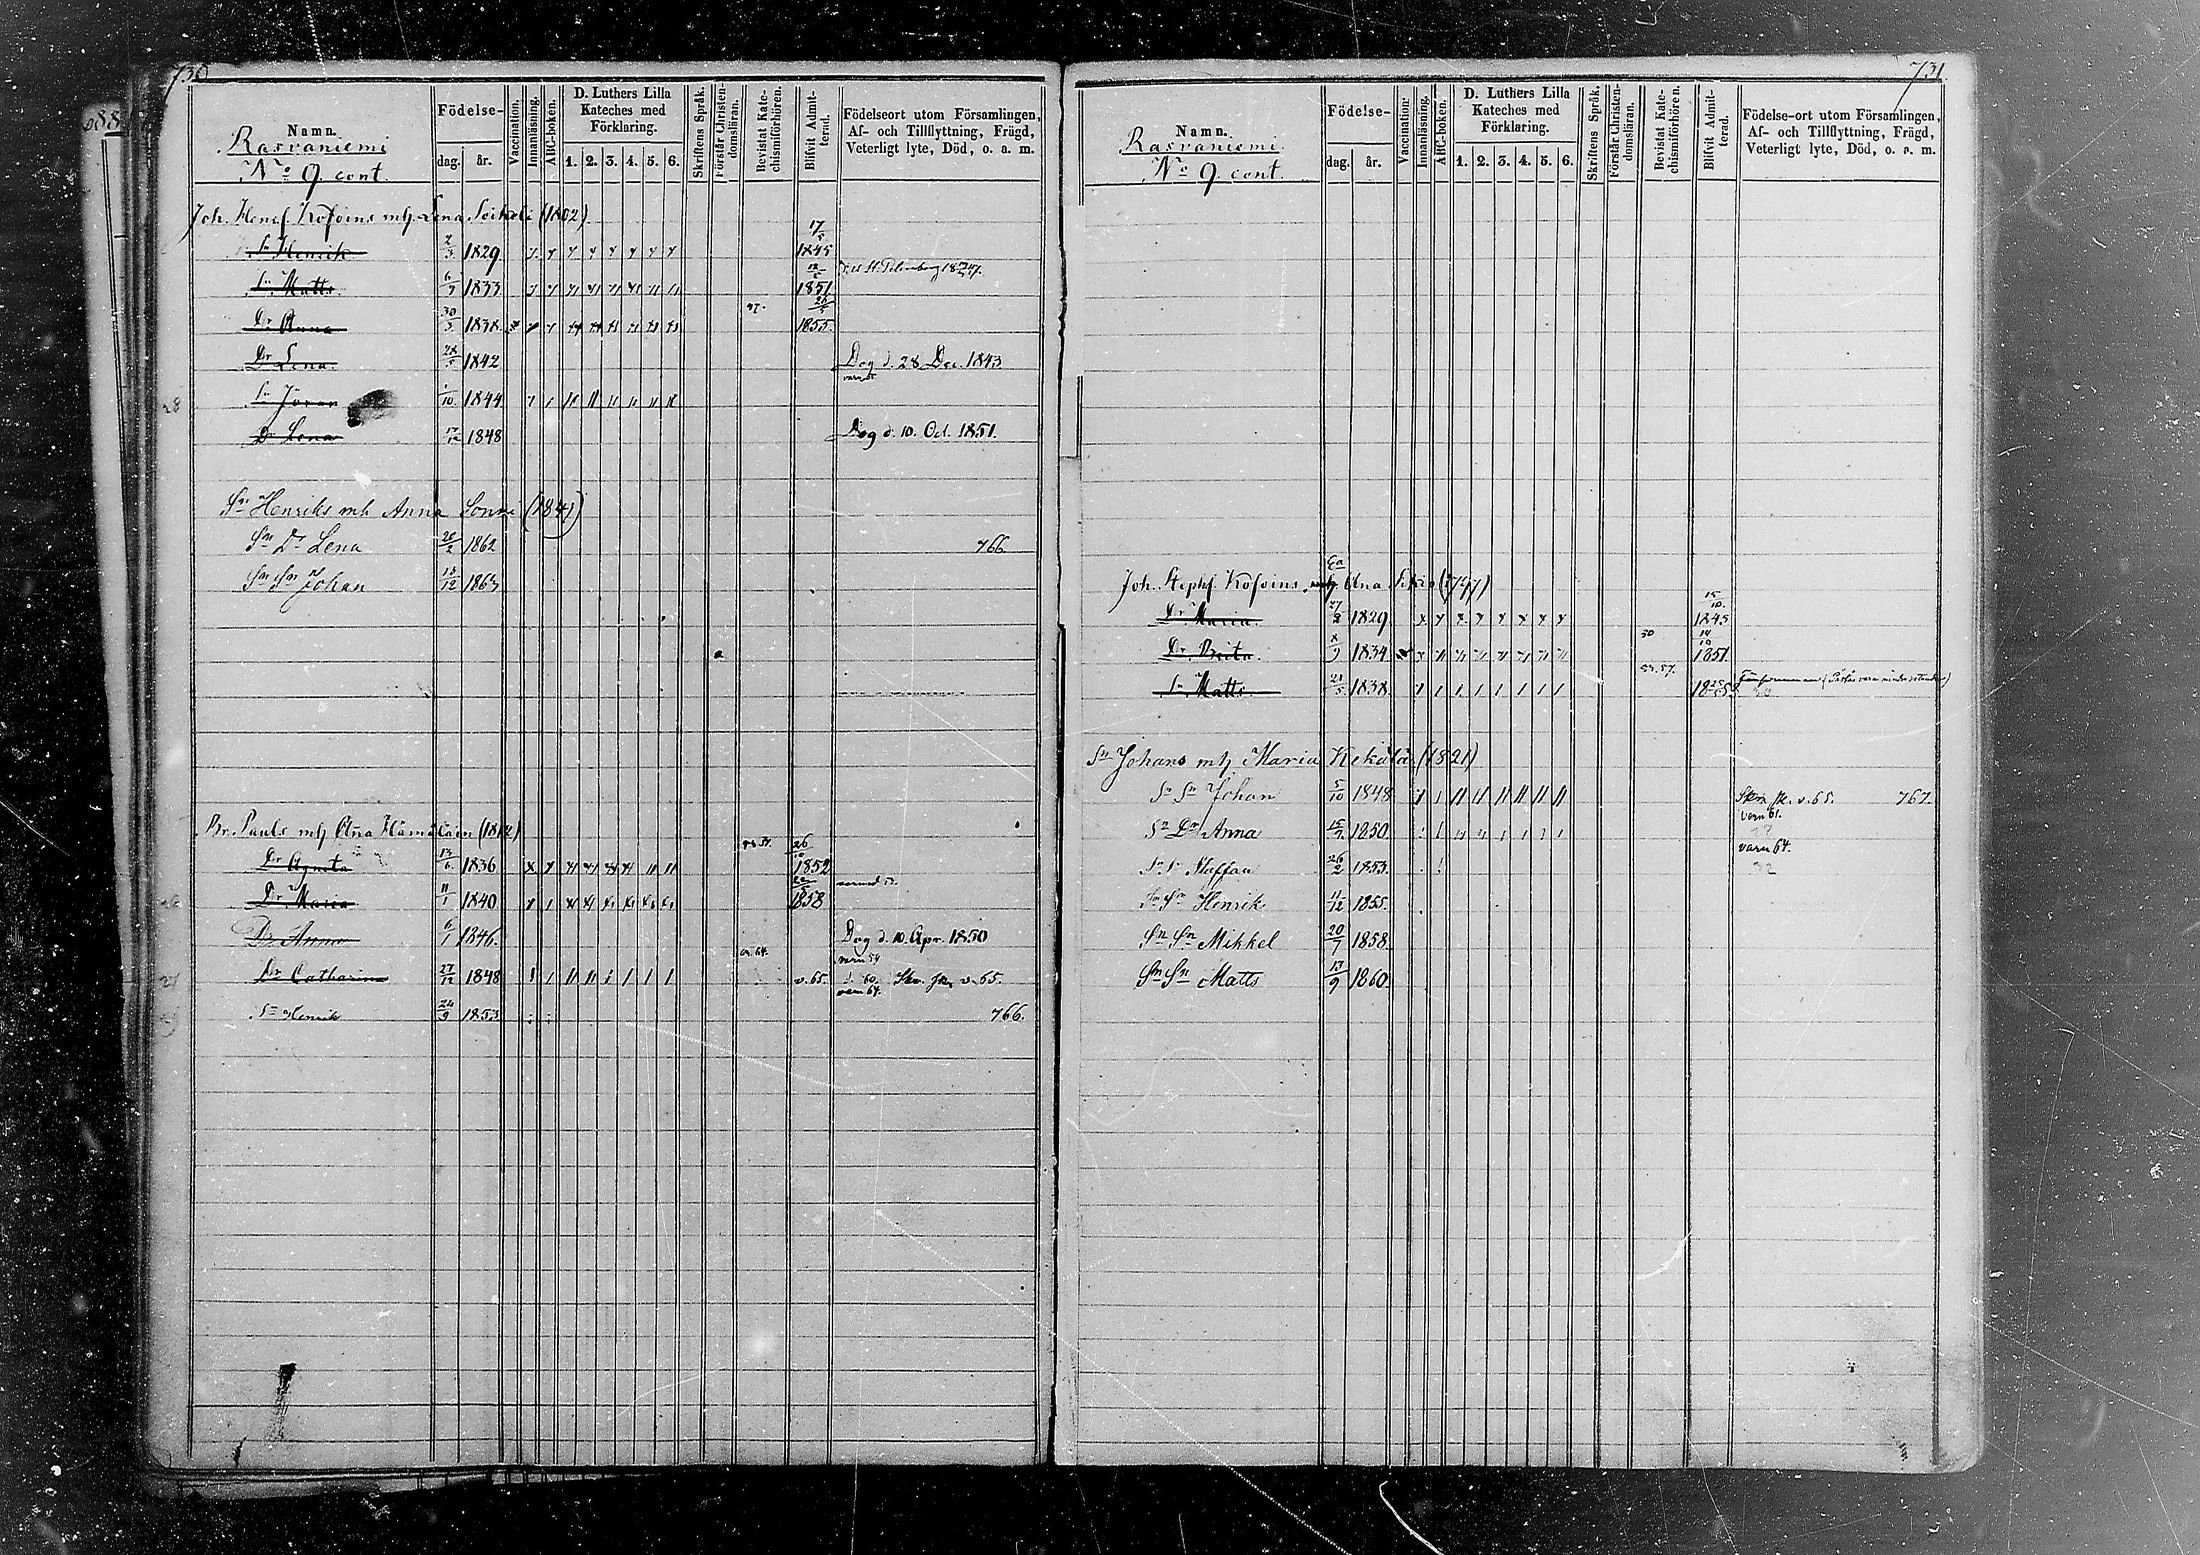 730
688
Namn.
Rasvaniemi
No 9. cont.
Födelse-
dag. år.
Vaccination.
Innanläsning.
ABC-boken.
D. Luthers Lilla
Kateches med
Förklaring.
1. 2. 3. 4. 5. 6.
Skriftens Språk.
Förstår Christen-
domsläran.
Bevistat Kate-
chismiförhören.
Blifvit Admit-
terad.
Födelseort utom Församlingen,
Af- och Tillflyttning, Frägd,
Veterligt lyte, Död, o. a. m.
Joh. Henr. mh Lena (1802)
17/5
Sn Henrik 2/3 1829 1845
Sn Matts 6/7 1833 1851
Dr Anna 30/3 1838 47. 26/5 1855.
Dr Lena 28/5 1842 Dog d. 28 Dec. 1843
28 Sn Göran 1/10 1844
Dr Lena 17/12 1848 Dog d. 10. Oct. 1851.
Sn Henriks mh Anna Sonni (1841)
Sn Dr Lena 20/2 1862 766.
Sn Sn Johan 13/12 1863
Br. Pauls mh Anna Hämäläin (1812)
Dr Agneta 13/6 1836 26/10 1852
Dr Maria 11/1 1840 1858
Dr Anna 6/1 1846. Dog d. 10. Apr. 1850
27 Dr Catharina 27/12 1848 v. 65. Skr. v. 65.
varn 64.
Sn Henrik 24/9 1853 766.
731
Namn.
Rasvaniemi
No 9. cont.
Födelse-
dag. år.
Vaccination.
Innanläsning.
ABC-boken.
D. Luthers Lilla
Kateches med
Förklaring.
1. 2. 3. 4. 5. 6.
Skriftens Språk.
Förstår Christen-
domsläran.
Bevistat Kate-
chismiförhören.
Blifvit Admit-
terad.
Födelse-ort utom Församlingen,
Af- och Tillflyttning, Frägd,
Veterligt lyte, Död, o. a. m.
Joh. Steph. mh Anna (1797)
Dr Maria 27/2 1829 15/10. 1845
Dr Brita 8/9 1834 50 14/10 1851
Sn Matts 21/5 1838 53. 57.
Sn Johans mh Maria Kekäläi (1821)
Sn Sn Johan 5/10 1848 v. 65. 767.
varn 61.
Sn Dr Anna 15/7 1850
varn 64.
Sn Sn Staffan 26/2 1853
Sn Sn Henrik 11/12 1855.
Sn Sn Mikkel 20/7 1858
Sn Sn Matts 13/9 1860.